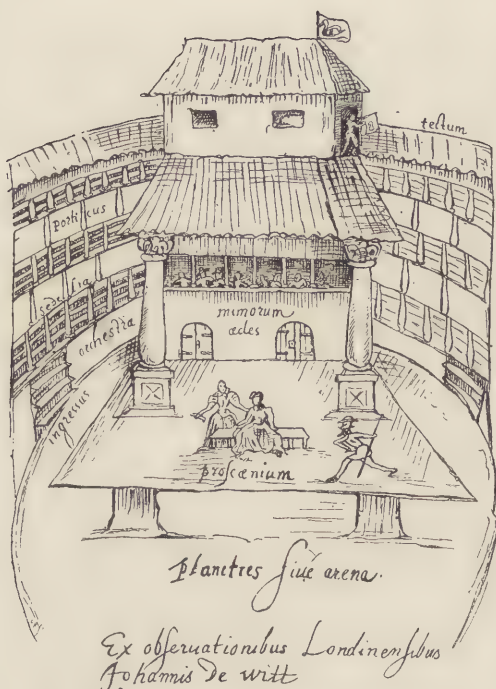 tectum
porticus
sedilia
orchestra
mimorum
ædes
ingressus
proscænium
planities siue arena.
Ex obseruationibus Londinensibus
Johannis De witt